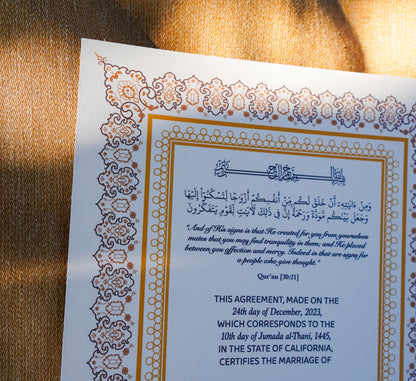 وَمِنْ ءَايَٰتِهِۦٓ أَنْ خَلَقَ لَكُم مِّنْ أَنفُسِكُمْ أَزْوَٰجًا لِّتَسْكُنُوٓا۟ إِلَيْهَا
وَجَعَلَ بَيْنَكُم مَّوَدَّةً وَرَحْمَةً إِنَّ فِى ذَٰلِكَ لَءَايَٰتٍ لِّقَوْمٍ يَتَفَكَّرُونَ
"And of His signs is that He created for you from yourselves
mates that you may find tranquility in them; and He placed
between you affection and mercy. Indeed in that are signs for
a people who give thought."
Qur'an [30:21]
THIS AGREEMENT, MADE ON THE
24th day of December, 2023,
WHICH CORRESPONDS TO THE
10th day of Jumada al-Thani, 1445,
IN THE STATE OF CALIFORNIA,
CERTIFIES THE MARRIAGE OF